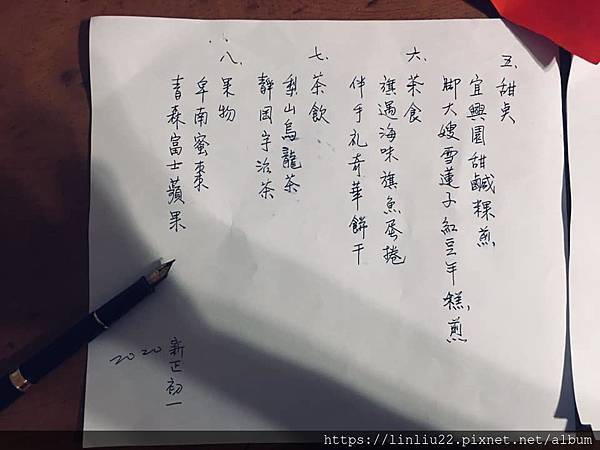 五、甜点
宜興園甜鹹粿煎
腳大嫂雪蓮子紅豆年糕煎
六、茶食
旗遇海味旗魚蛋捲
伴手礼奇華餅干
七、茶飲
梨山烏龍茶
靜岡宇治茶
八、果物
卑南蜜棗
青森富士蘋果
2020
新正初一
https://linliu22.pixnet.net/album